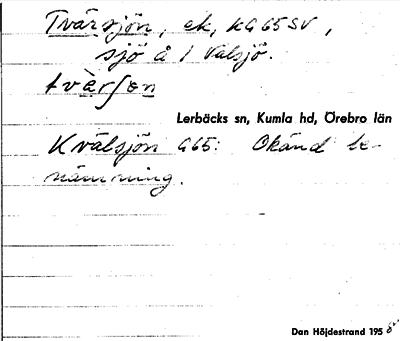 Tvärsjön, ek, KG65SV,
sjö å 1 Välsjö.
tvèrſon
Lerbäcks sn, Kumla hd, Örebro län
Kvälsjön G65: Okänd be-
nämning.
Dan Höjdestrand 1958